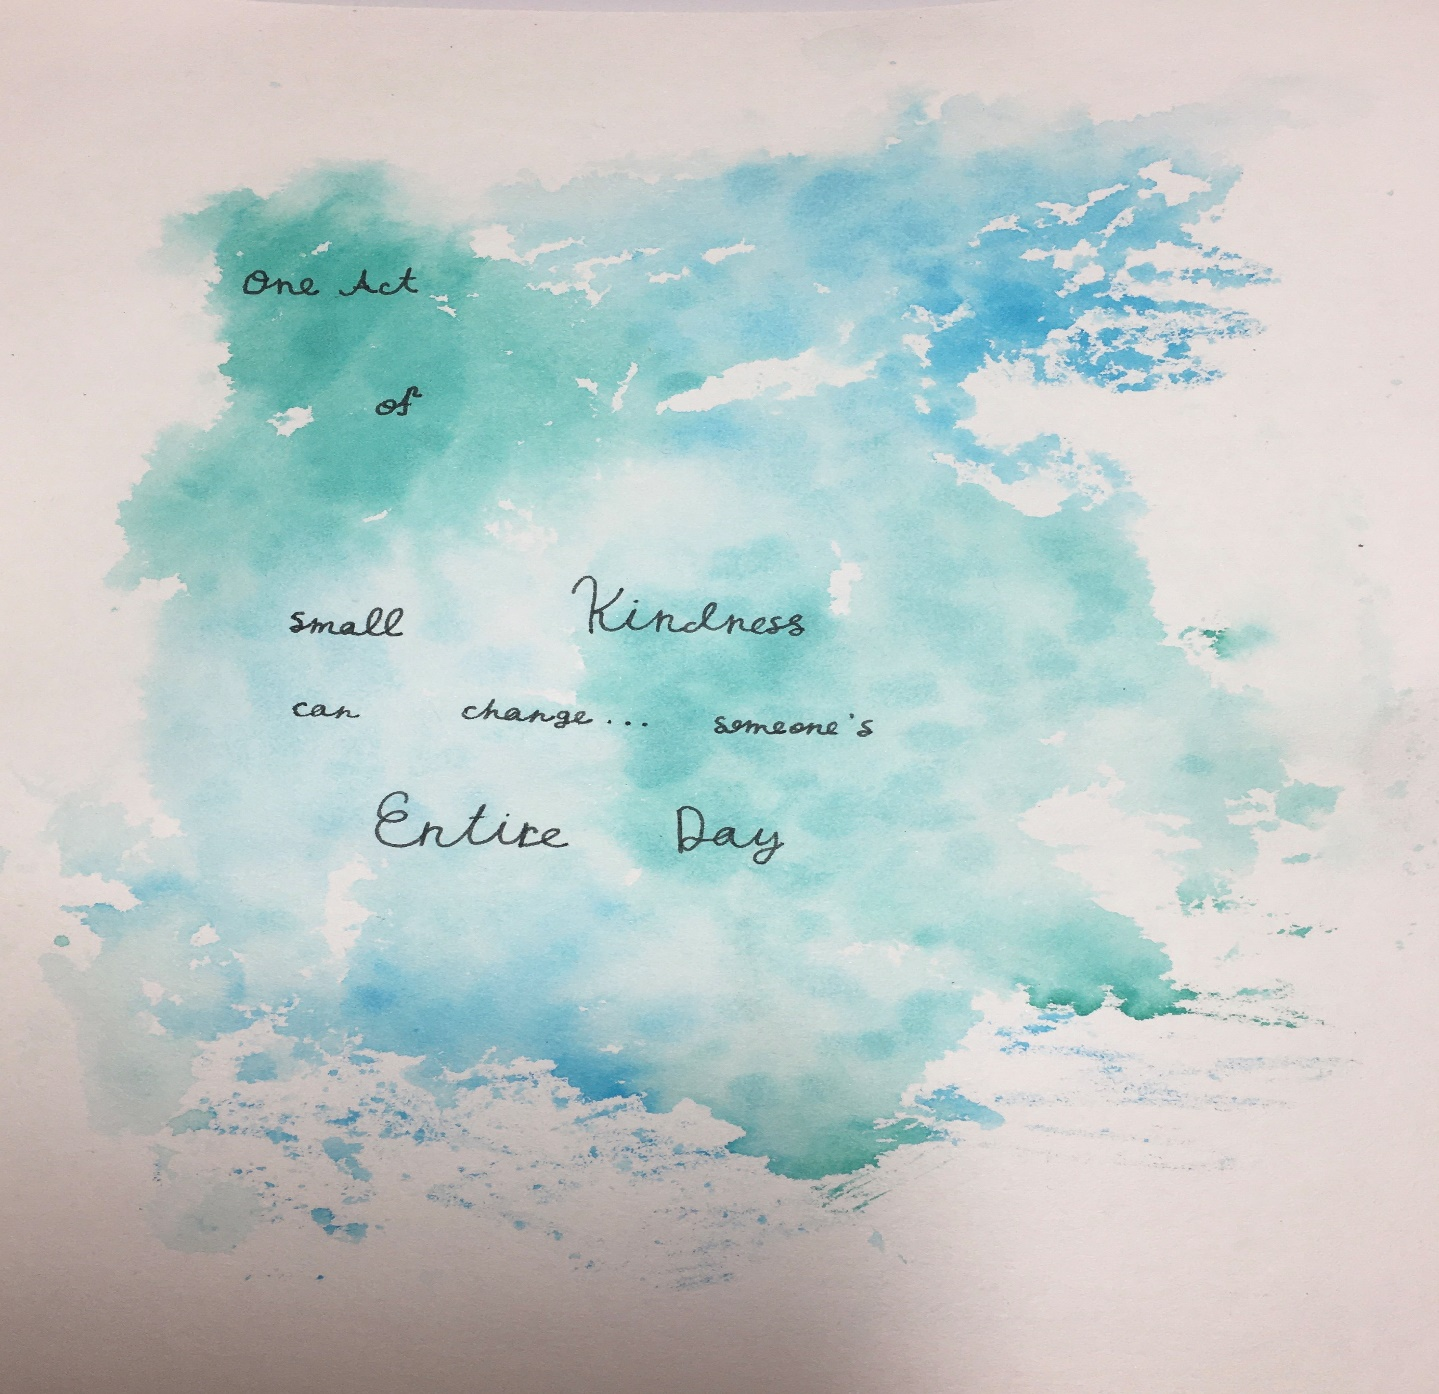 One Act
of
small Kindness
can change... someone's
Entire Day